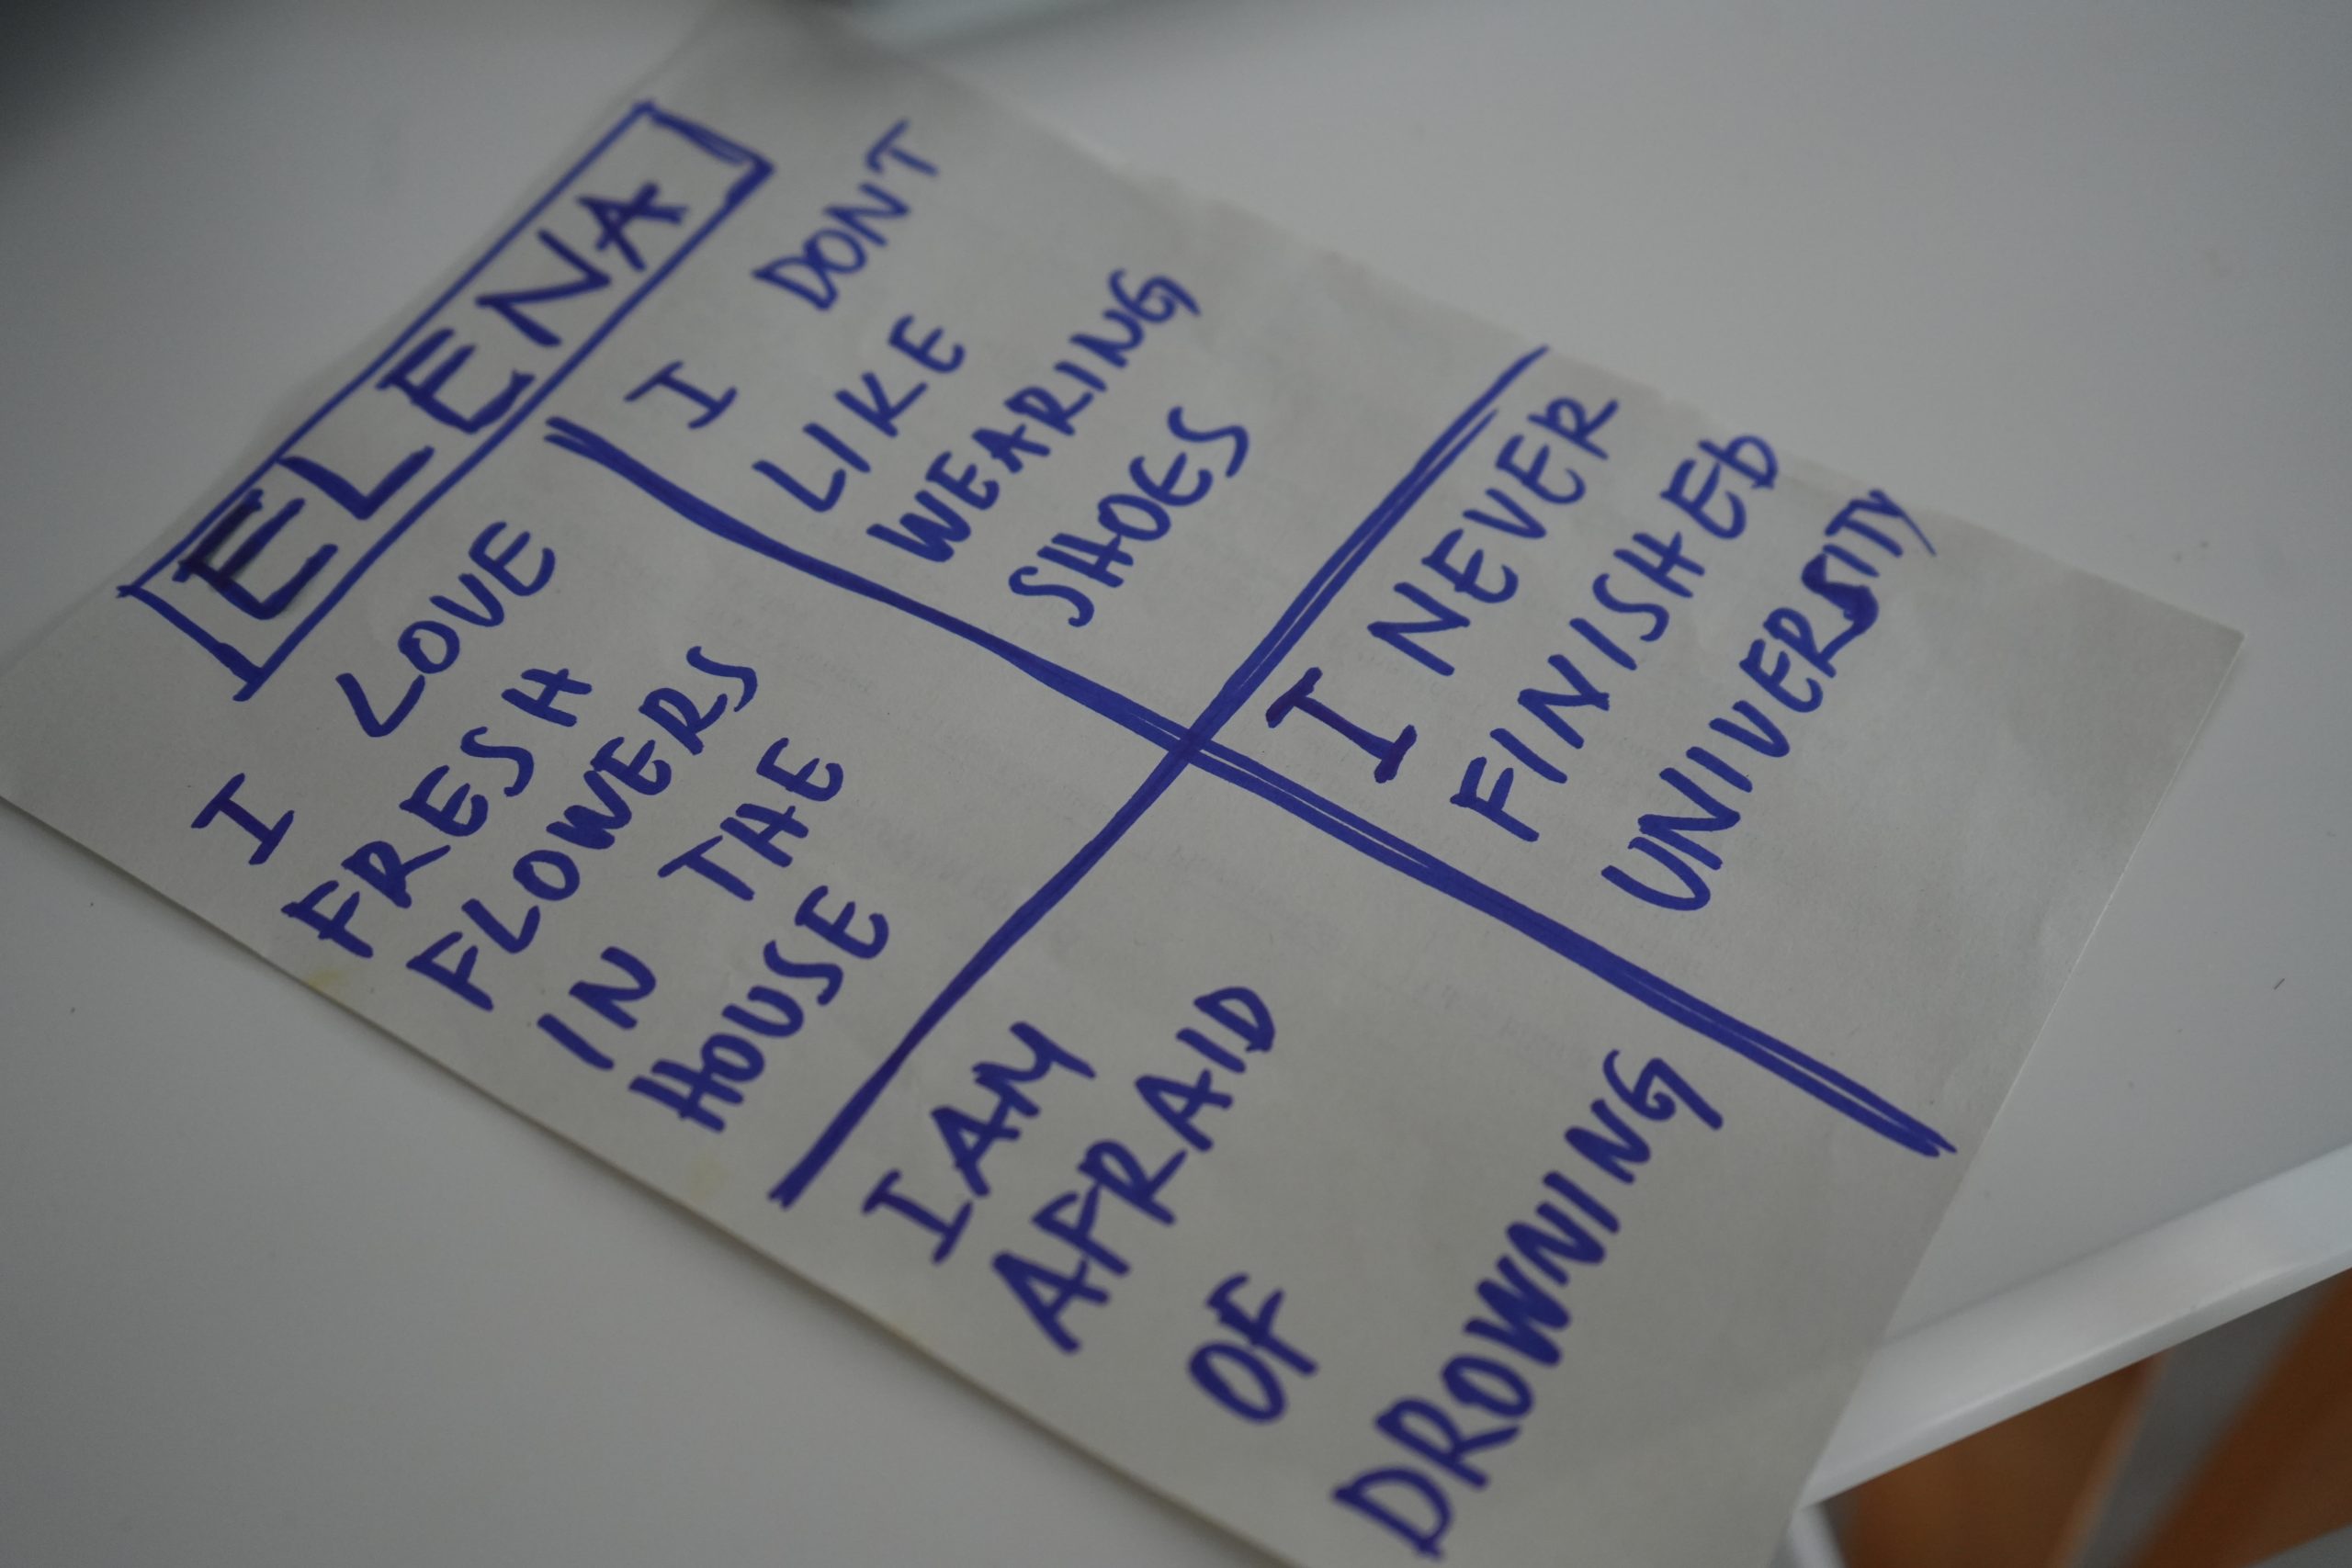 ELENA
I LOVE
FRESH
FLOWERS
IN THE
HOUSE
I DONT
LIKE
WEARING
SHOES
I AM
AFRAID
OF
DROWNING
I NEVER
FINISHED
UNIVERSITY